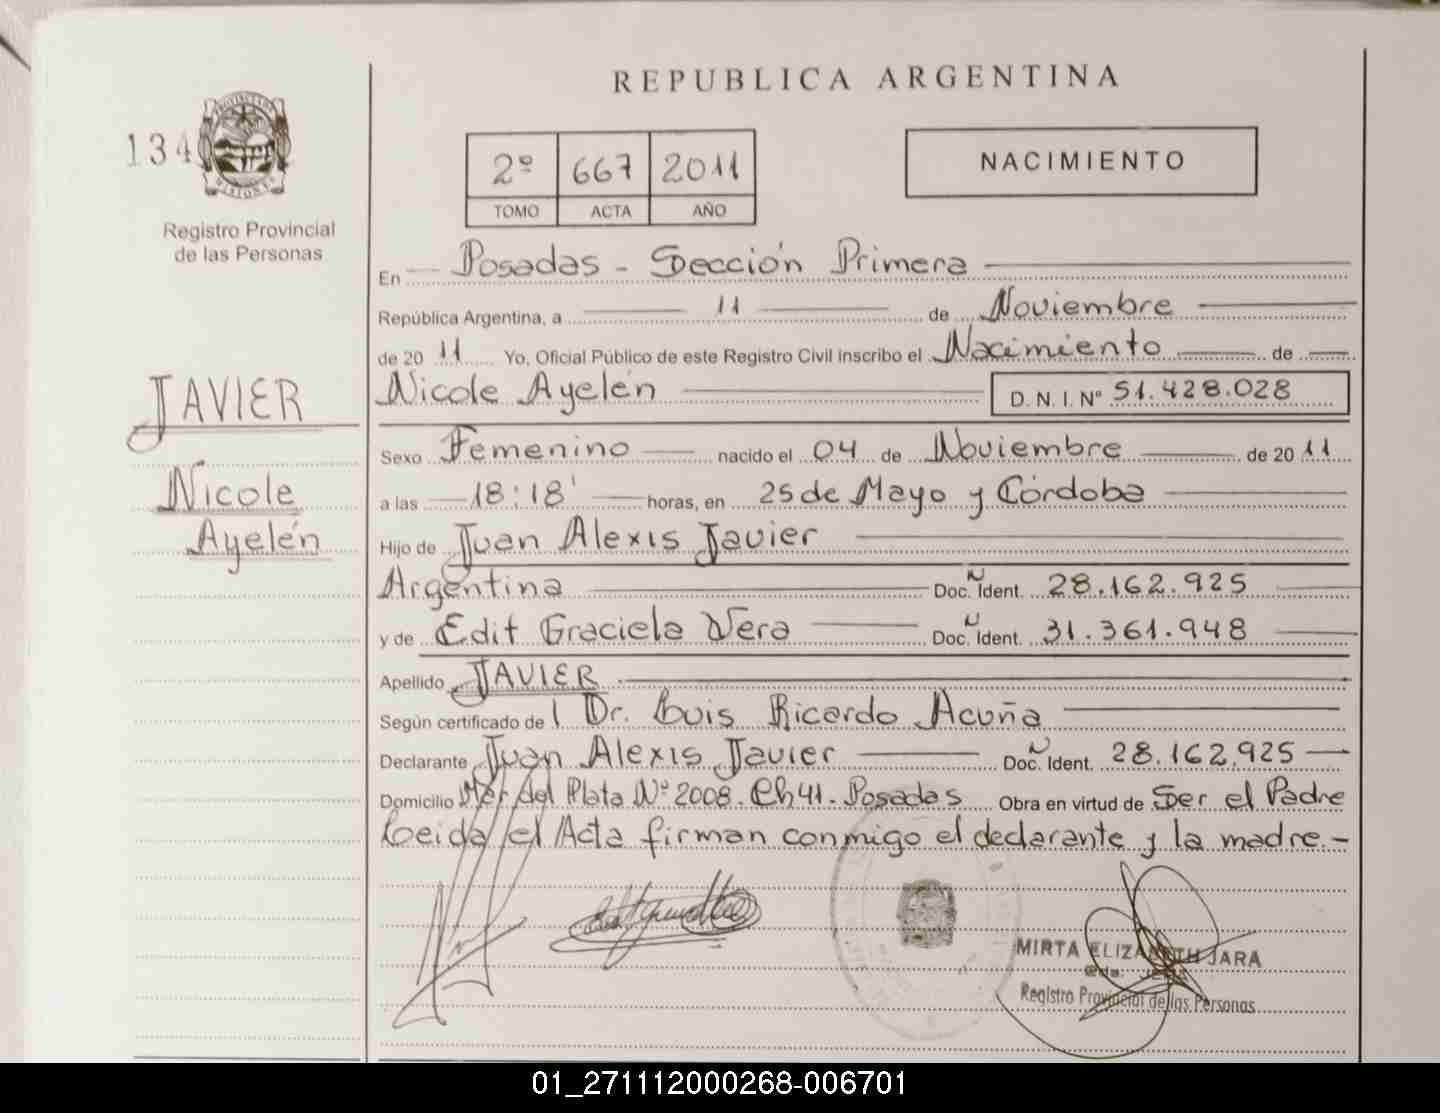 REPUBLICA ARGENTINA
134
Registro Provincial
de las Personas
2º 667 2011
TOMO ACTA AÑO
NACIMIENTO
En Posadas - Sección Primera
República Argentina, a 11 de Noviembre
de 2011 Yo, Oficial Público de este Registro Civil inscribo el Nacimiento de
Nicole Ayelén D. N. I. Nº 51.428.028
JAVIER
Nicole
Ayelén
Sexo Femenino nacido el 04 de Noviembre de 2011
a las 18:18' horas, en 25 de Mayo y Córdoba
Hijo de Juan Alexis Javier
Argentina Doc. N Ident. 28.162.925
y de Edit Graciela Vera Doc. N Ident. 31.361.948
Apellido JAVIER
Según certificado de l Dr. Luis Ricardo Acuña
Declarante Juan Alexis Javier Doc. N Ident. 28.162.925
Domicilio Mar del Plata Nº 2008. Ch 41. Posadas Obra en virtud de Ser el Padre
Leida el Acta firman conmigo el declarante y la madre.-
MIRTA ELIZABETH JARA
Registro Provincial de las Personas
01_271112000268-006701